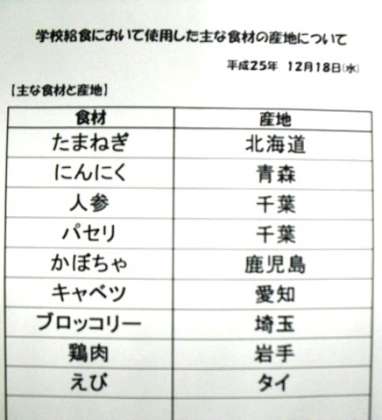 学校給食において使用した主な食材の産地について
平成25年 12月18日(水)
【主な食材と産地】
食材 産地
たまねぎ 北海道
にんにく 青森
人参 千葉
パセリ 千葉
かぼちゃ 鹿児島
キャベツ 愛知
ブロッコリー 埼玉
鶏肉 岩手
えび タイ